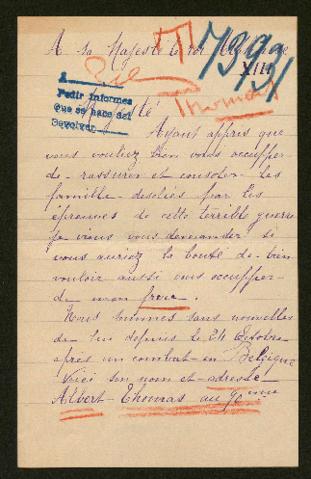 A Sa Majesté Le roi Alphonse
XIII
T
739/31
Petir informes
que se hace del
Devolver
Majesté
Thomas
Ayant appris que
vous vouliez bien vous occupper
de rassurer et consoler les
famille desolés par les
épreuves de cette terrible guerre
je viens vous demander si
vous auriez la bonté de bien
vouloir aussi vous occupper
de mon frère.
Nous sommes sans nouvelles
de lui depuis le 24 Octobre
après un combat en Belgique
Voici son nom et adresse
Albert Thomas au 90ème